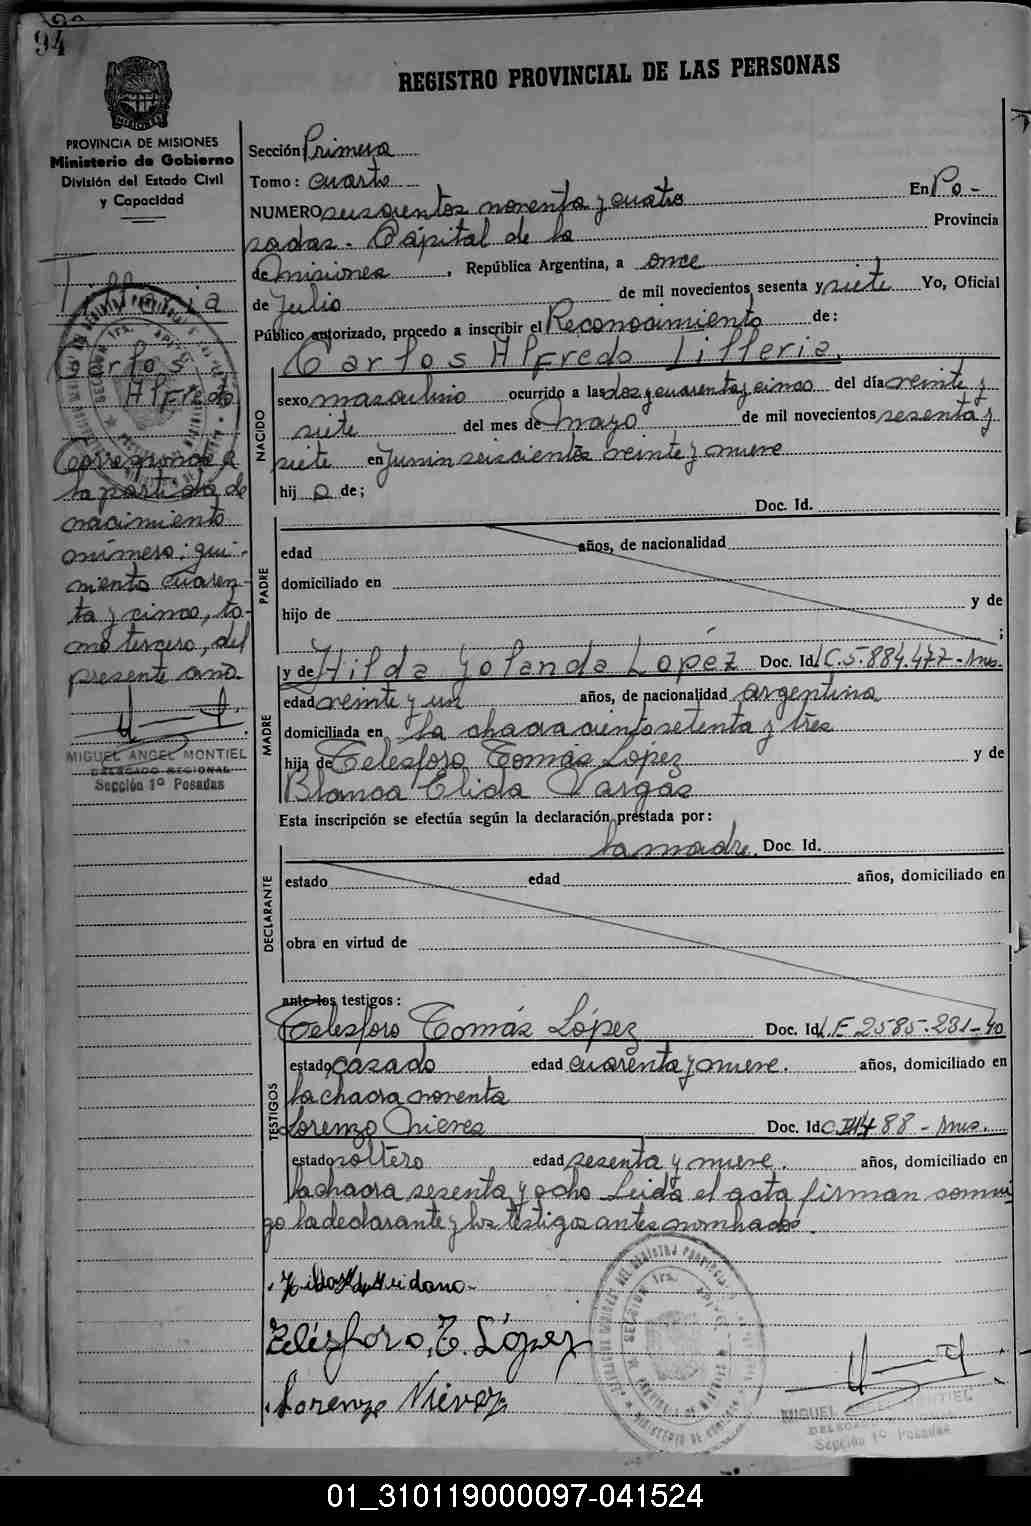 94
REGISTRO PROVINCIAL DE LAS PERSONAS
MISIONES
PROVINCIA DE MISIONES
Ministerio de Gobierno
División del Estado Civil
y Capacidad
Carlos
Alfredo
Corresponde a
la partida de
nacimiento
número: qui-
niento cuaren-
ta y cinco, to-
mo tercero, del
presente año.
MIGUEL ANGEL MONTIEL
DELEGADO REGIONAL
Sección 1º Posadas
Sección Primera
Tomo: cuarto
NUMERO seiscientos noventa y cuatro En Po-
sadas. Capital de la Provincia
de Misiones, República Argentina, a once
de Julio de mil novecientos sesenta y siete Yo, Oficial
Público autorizado, procedo a inscribir el Reconocimiento de:
Carlos Alfredo
NACIDO
sexo masculino ocurrido a las dos y cuarenta y cinco del día veinte y
siete del mes de Mayo de mil novecientos sesenta y
siete en Junin seiscientos veinte y nueve
hij o de;
Doc. Id.
PADRE
edad años, de nacionalidad
domiciliado en
hijo de y de
;
MADRE
y de Hilda Yolanda López Doc. Id. C.5.884.477-Mns.
edad veinte y un años, de nacionalidad argentina
domiciliada en la chacra ciento setenta y tres
hija de Telesforo Tomás López y de
Blanca Elida Vargas
Esta inscripción se efectúa según la declaración prestada por:
la madre. Doc. Id.
DECLARANTE
estado edad años, domiciliado en
obra en virtud de
ante los testigos:
Telesforo Tomás López Doc. Id. L.E 2585.231-40
TESTIGOS
estado casado edad cuarenta y nueve. años, domiciliado en
la chacra noventa
Lorenzo Nieves Doc. Id. 88-Mns.
estado soltero edad sesenta y nueve. años, domiciliado en
la chacra sesenta y ocho Leida el acta firman conmi
go la declarante y los testigos antes nombrados.
Telésforo, T. López
Lorenzo Nievez
MIGUEL ANGEL MONTIEL
DELEGADO REGIONAL
Sección 1º Posadas
01_310119000097-041524